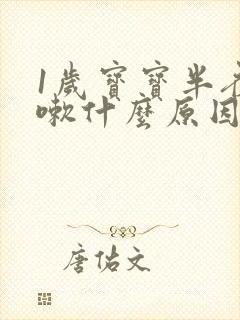 1歲寶寶半
嗽什麼原因
唐佑文